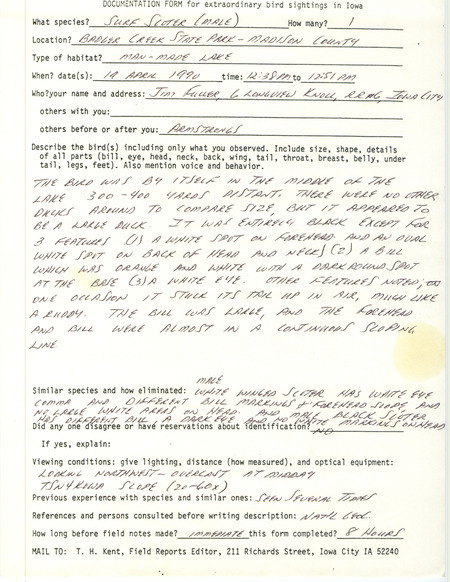 DOCUMENTATION FORM for extraordinary bird sightings in Iowa
What species? SURF SCOTER (MALE) How many? 1
Location? BADGER CREEK STATE PARK - MADISON COUNTY
Type of habitat? MAN-MADE LAKE
When? date(s): 19 APRIL 1990 time: 12:38 PM to 12:51 PM
Who?your name and address: JIM FULLER, 6 LONGVIEW KNOLL, R.R.#6, IOWA CITY
others with you:
others before or after you: ARMSTRONGS
Describe the bird(s) including only what you observed. Include size, shape, details
of all parts (bill, eye, head, neck, back, wing, tail, throat, breast, belly, under
tail, legs, feet). Also mention voice and behavior.
THE BIRD WAS BY ITSELF IN THE MIDDLE OF THE
LAKE 300-400 YARDS DISTANT. THERE WERE NO OTHER
DUCKS AROUND TO COMPARE SIZE, BUT IT APPEARED TO
BE A LARGE DUCK. IT WAS ENTIRELY BLACK EXCEPT FOR
3 FEATURES (1) A WHITE SPOT ON FOREHEAD AND AN OVAL
WHITE SPOT ON BACK OF HEAD AND NECK (2) A BILL
WHICH WAS ORANGE AND WHITE WITH A DARK ROUND SPOT
AT THE BASE (3) A WHITE EYE. OTHER FEATURES NOTED; ON
ONE OCCASION IT STUCK ITS TAIL UP IN AIR, MUCH LIKE
A RUDDY. THE BILL WAS LARGE, AND THE FOREHEAD
AND BILL WERE ALMOST IN A CONTINUOUS SLOPING
LINE
MALE
Similar species and how eliminated: WHITE WINGED SCOTER HAS WHITE EYE
COMMA AND DIFFERENT BILL MARKINGS + FOREHEAD SLOPE AND
NO LARGE WHITE AREAS ON HEAD. AND MALE BLACK SCOTER
HAS DIFFERENT BILL A DARK EYE AND NO WHITE MARKINGS ON HEAD
Did any one disagree or have reservations about identification? NO
If yes, explain:
Viewing conditions: give lighting, distance (how measured), and optical equipment:
LOOKING NORTHWEST - OVERCAST AT MIDDAY
TSN4 KOWA SCOPE (20-60X)
Previous experience with species and similar ones: SEEN SEVERAL TIMES
References and persons consulted before writing description: NAT'L GEO.
How long before field notes made? IMMEDIATE this form completed? 8 HOURS
MAIL TO: T. H. Kent, Field Reports Editor, 211 Richards Street, Iowa City IA 52240